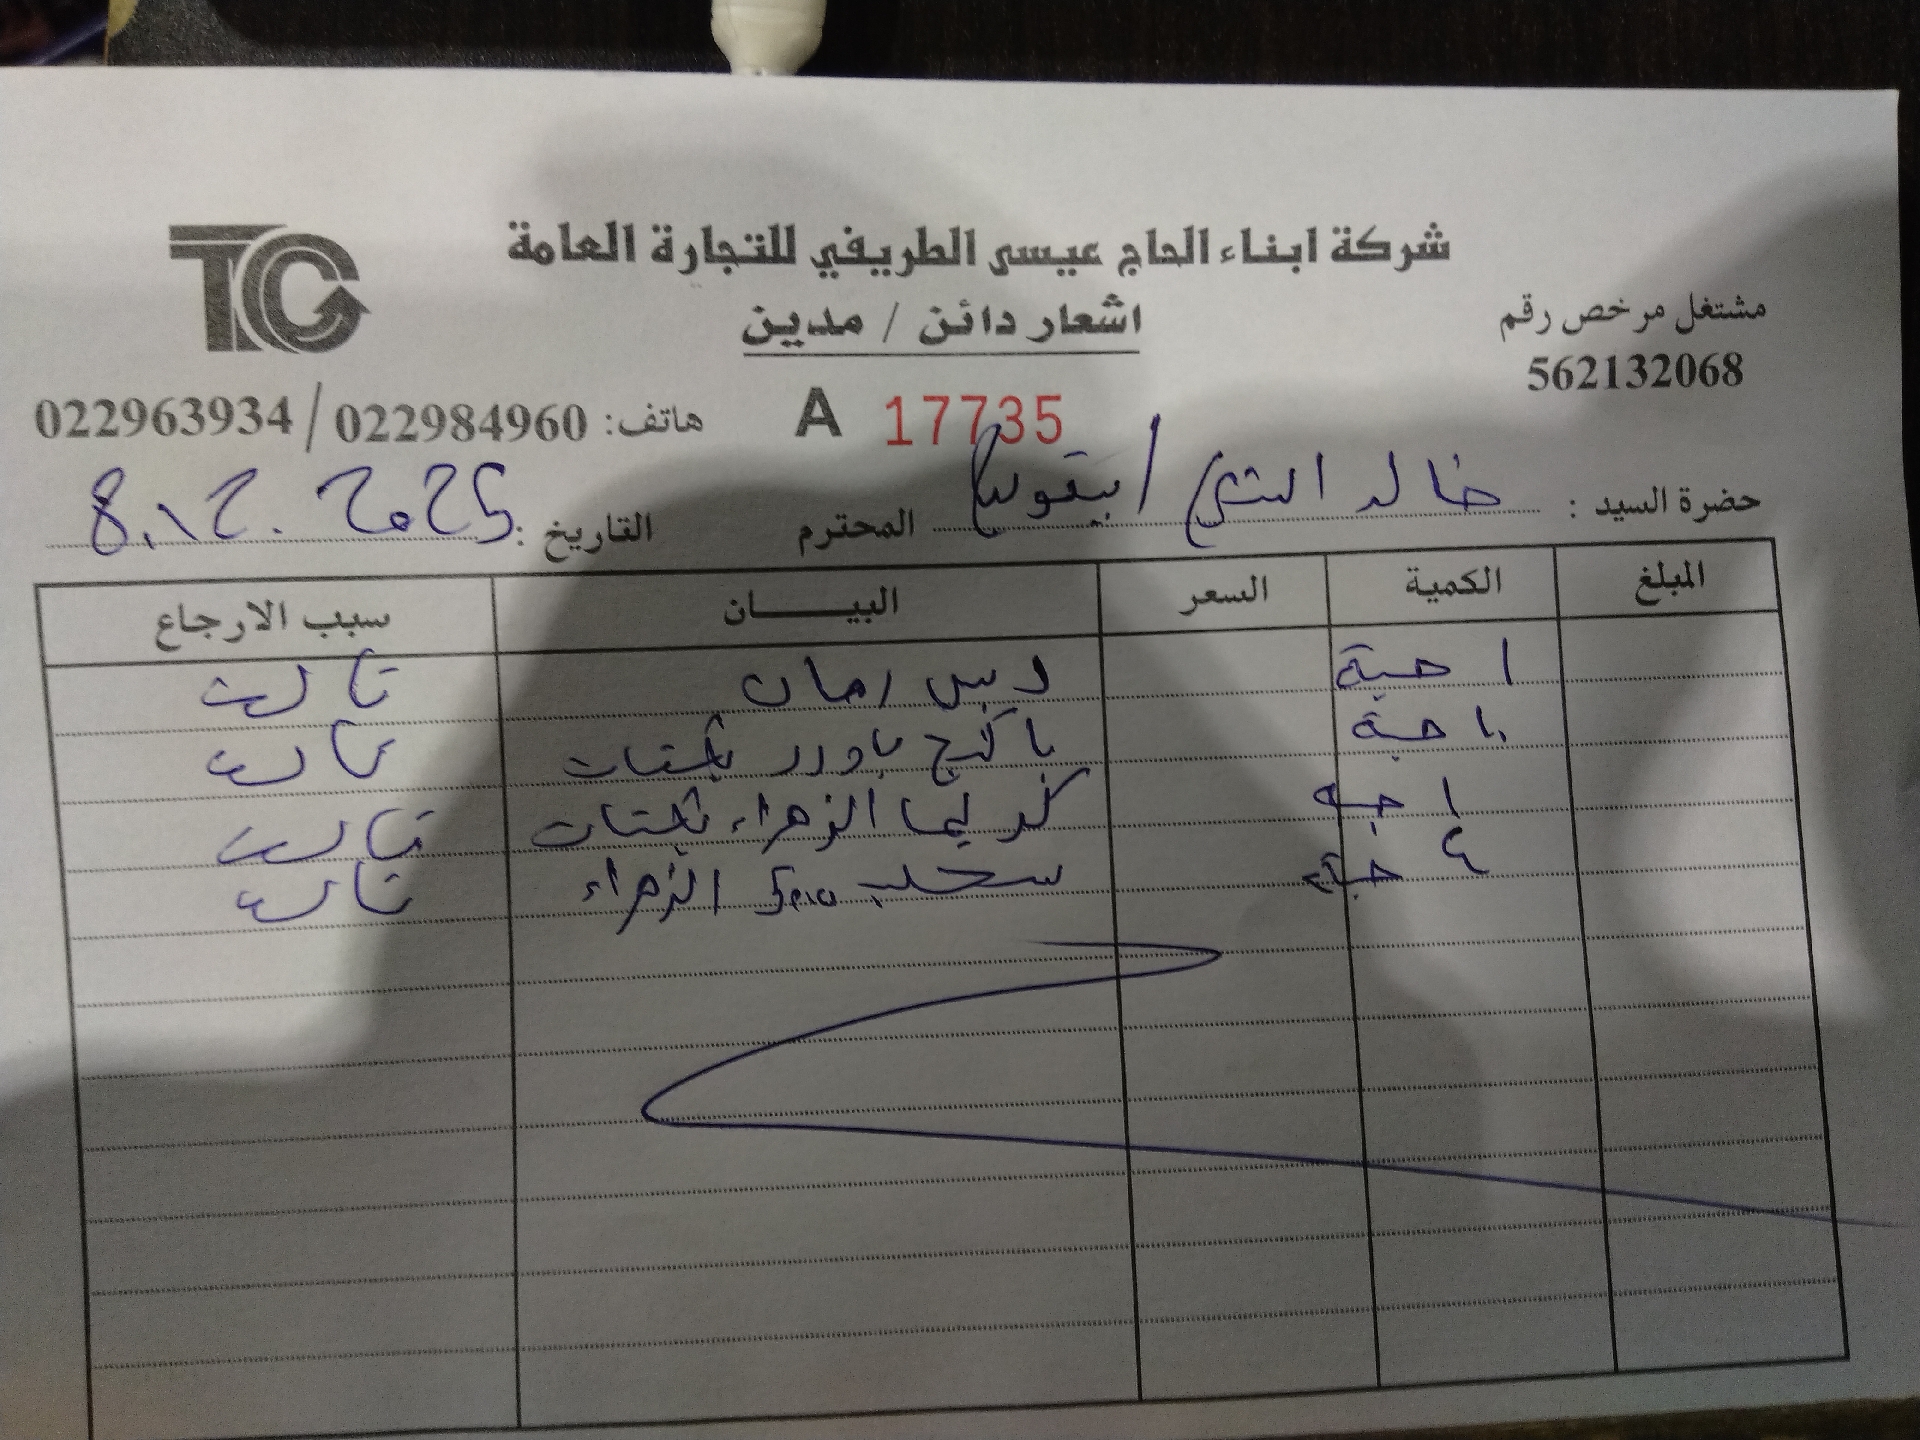 شركة ابناء الحاج عيسى الطريفي للتجارة العامة
TC
اشعار دائن / مدين
مشتغل مرخص رقم
562132068
A 17735
هاتف: 022984960 / 022963934
حضرة السيد : خالد / المحترم
التاريخ : 8.12.2025
المبلغ الكمية السعر البيـــــان سبب الارجاع
1 حبة دبس رمان تالف
10 حبة باكنج باودر تالف
1 حبة كريما الزهراء تالف
٤ حبة سحلب 500 الزهراء تالف